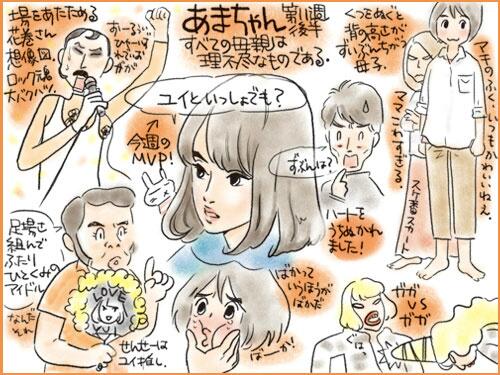 場をあたためる
花巻さん
想像図。
ロック魂
大バクハツ。
すーるぅ〜
ひゃーは
かばが
あまちゃん
第11週
後半
すべての母親は
理不尽なものである。
くつをぬぐと
背の高さが
ずいぶんちがう
母子。
ユイといっしょでも?
今週の
MVP!
ずぶんは?
ハートを
うちぬかれ
ました!
アキのふく、いつもかわいいねえ
ママこわすぎる。
スケ番スカート
足場さ
組んで
ふたり
ひとくみの
アイドル!
なんだ
それ
LOVE
YUI
せんせーは
ユイ推し。
ばかって
いうほうが
ばかだ
ばーか!
ガガ
VS
ガガ